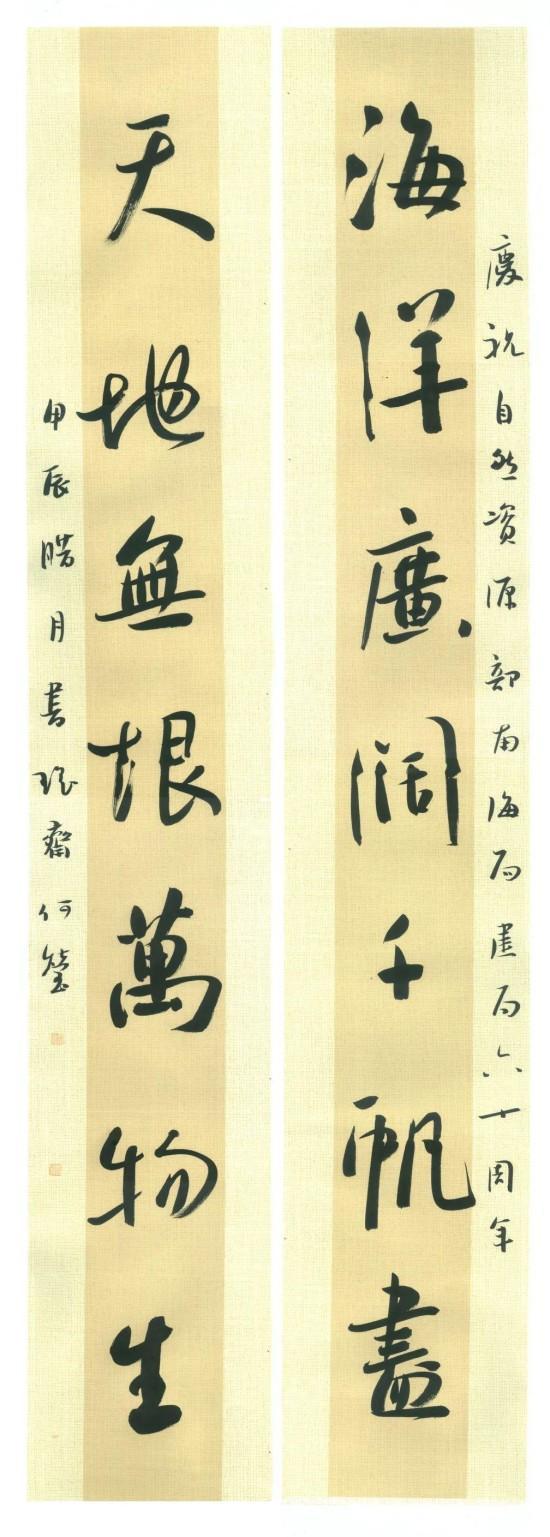 慶祝自然資源部南海局建局六十周年
海洋廣闊千帆盡
天地無垠萬物生
甲辰腊月書齋何瑩